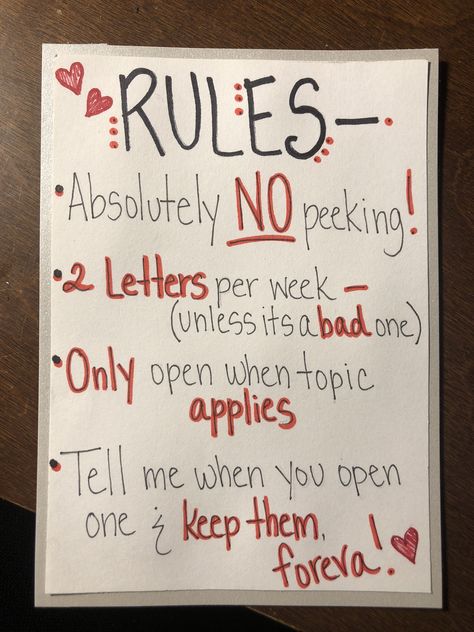 RULES—
• Absolutely NO peeking!
• 2 Letters per week —
(unless its a bad one)
• Only open when topic
applies
• Tell me when you open
one & keep them,
foreva!